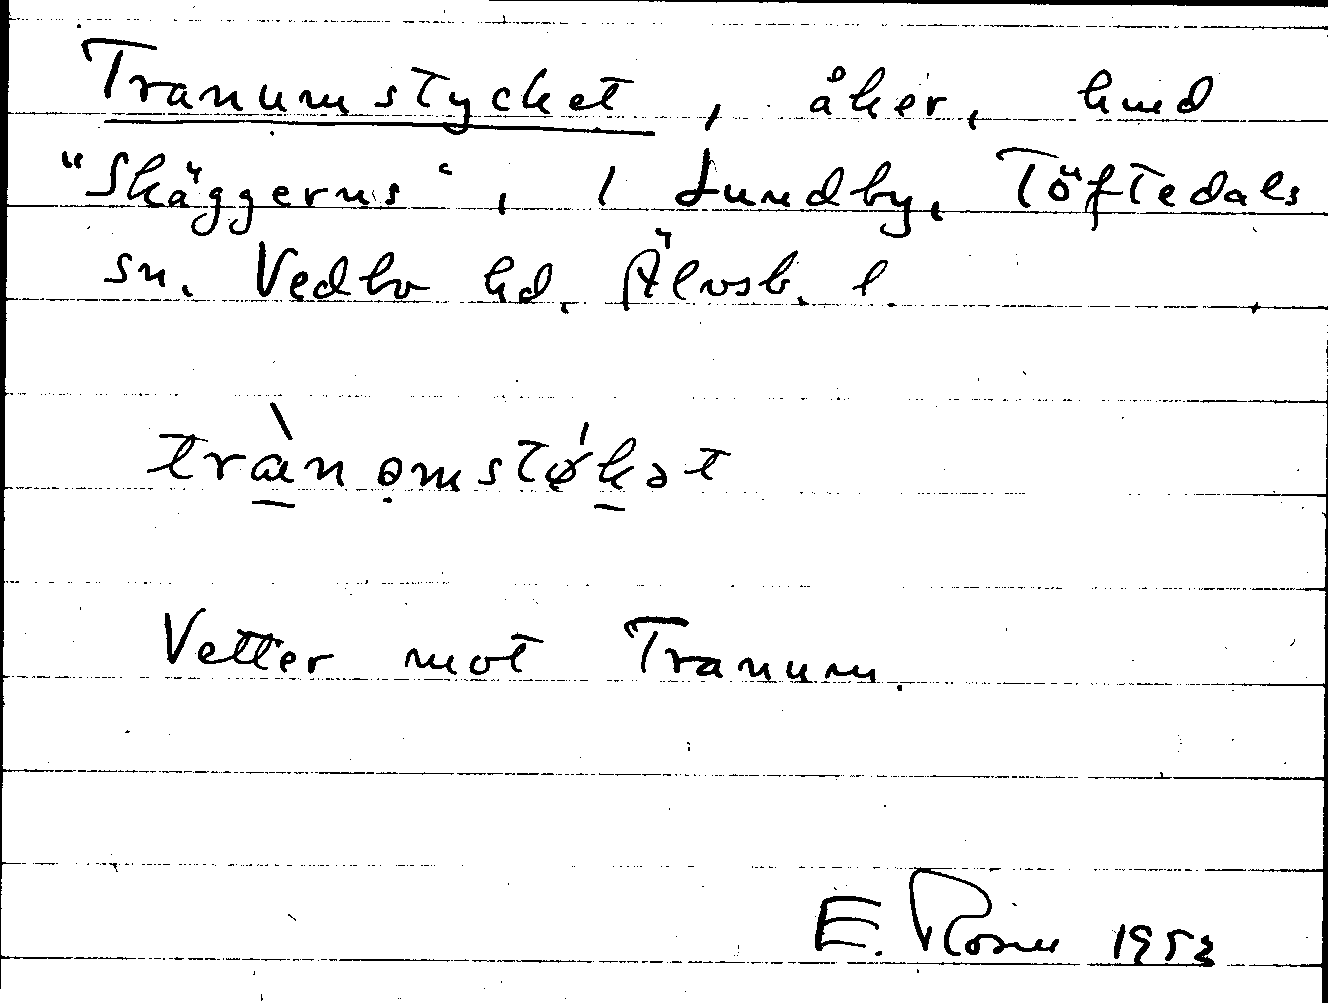 Tranumstycket, åker, hmd
"Skäggerns", 1 Lundby, Töftedals
sn. Vedbo hd. Älvsb. l.
trànomstǿkət
Vetter mot Tranum.
E. Rosén 1953